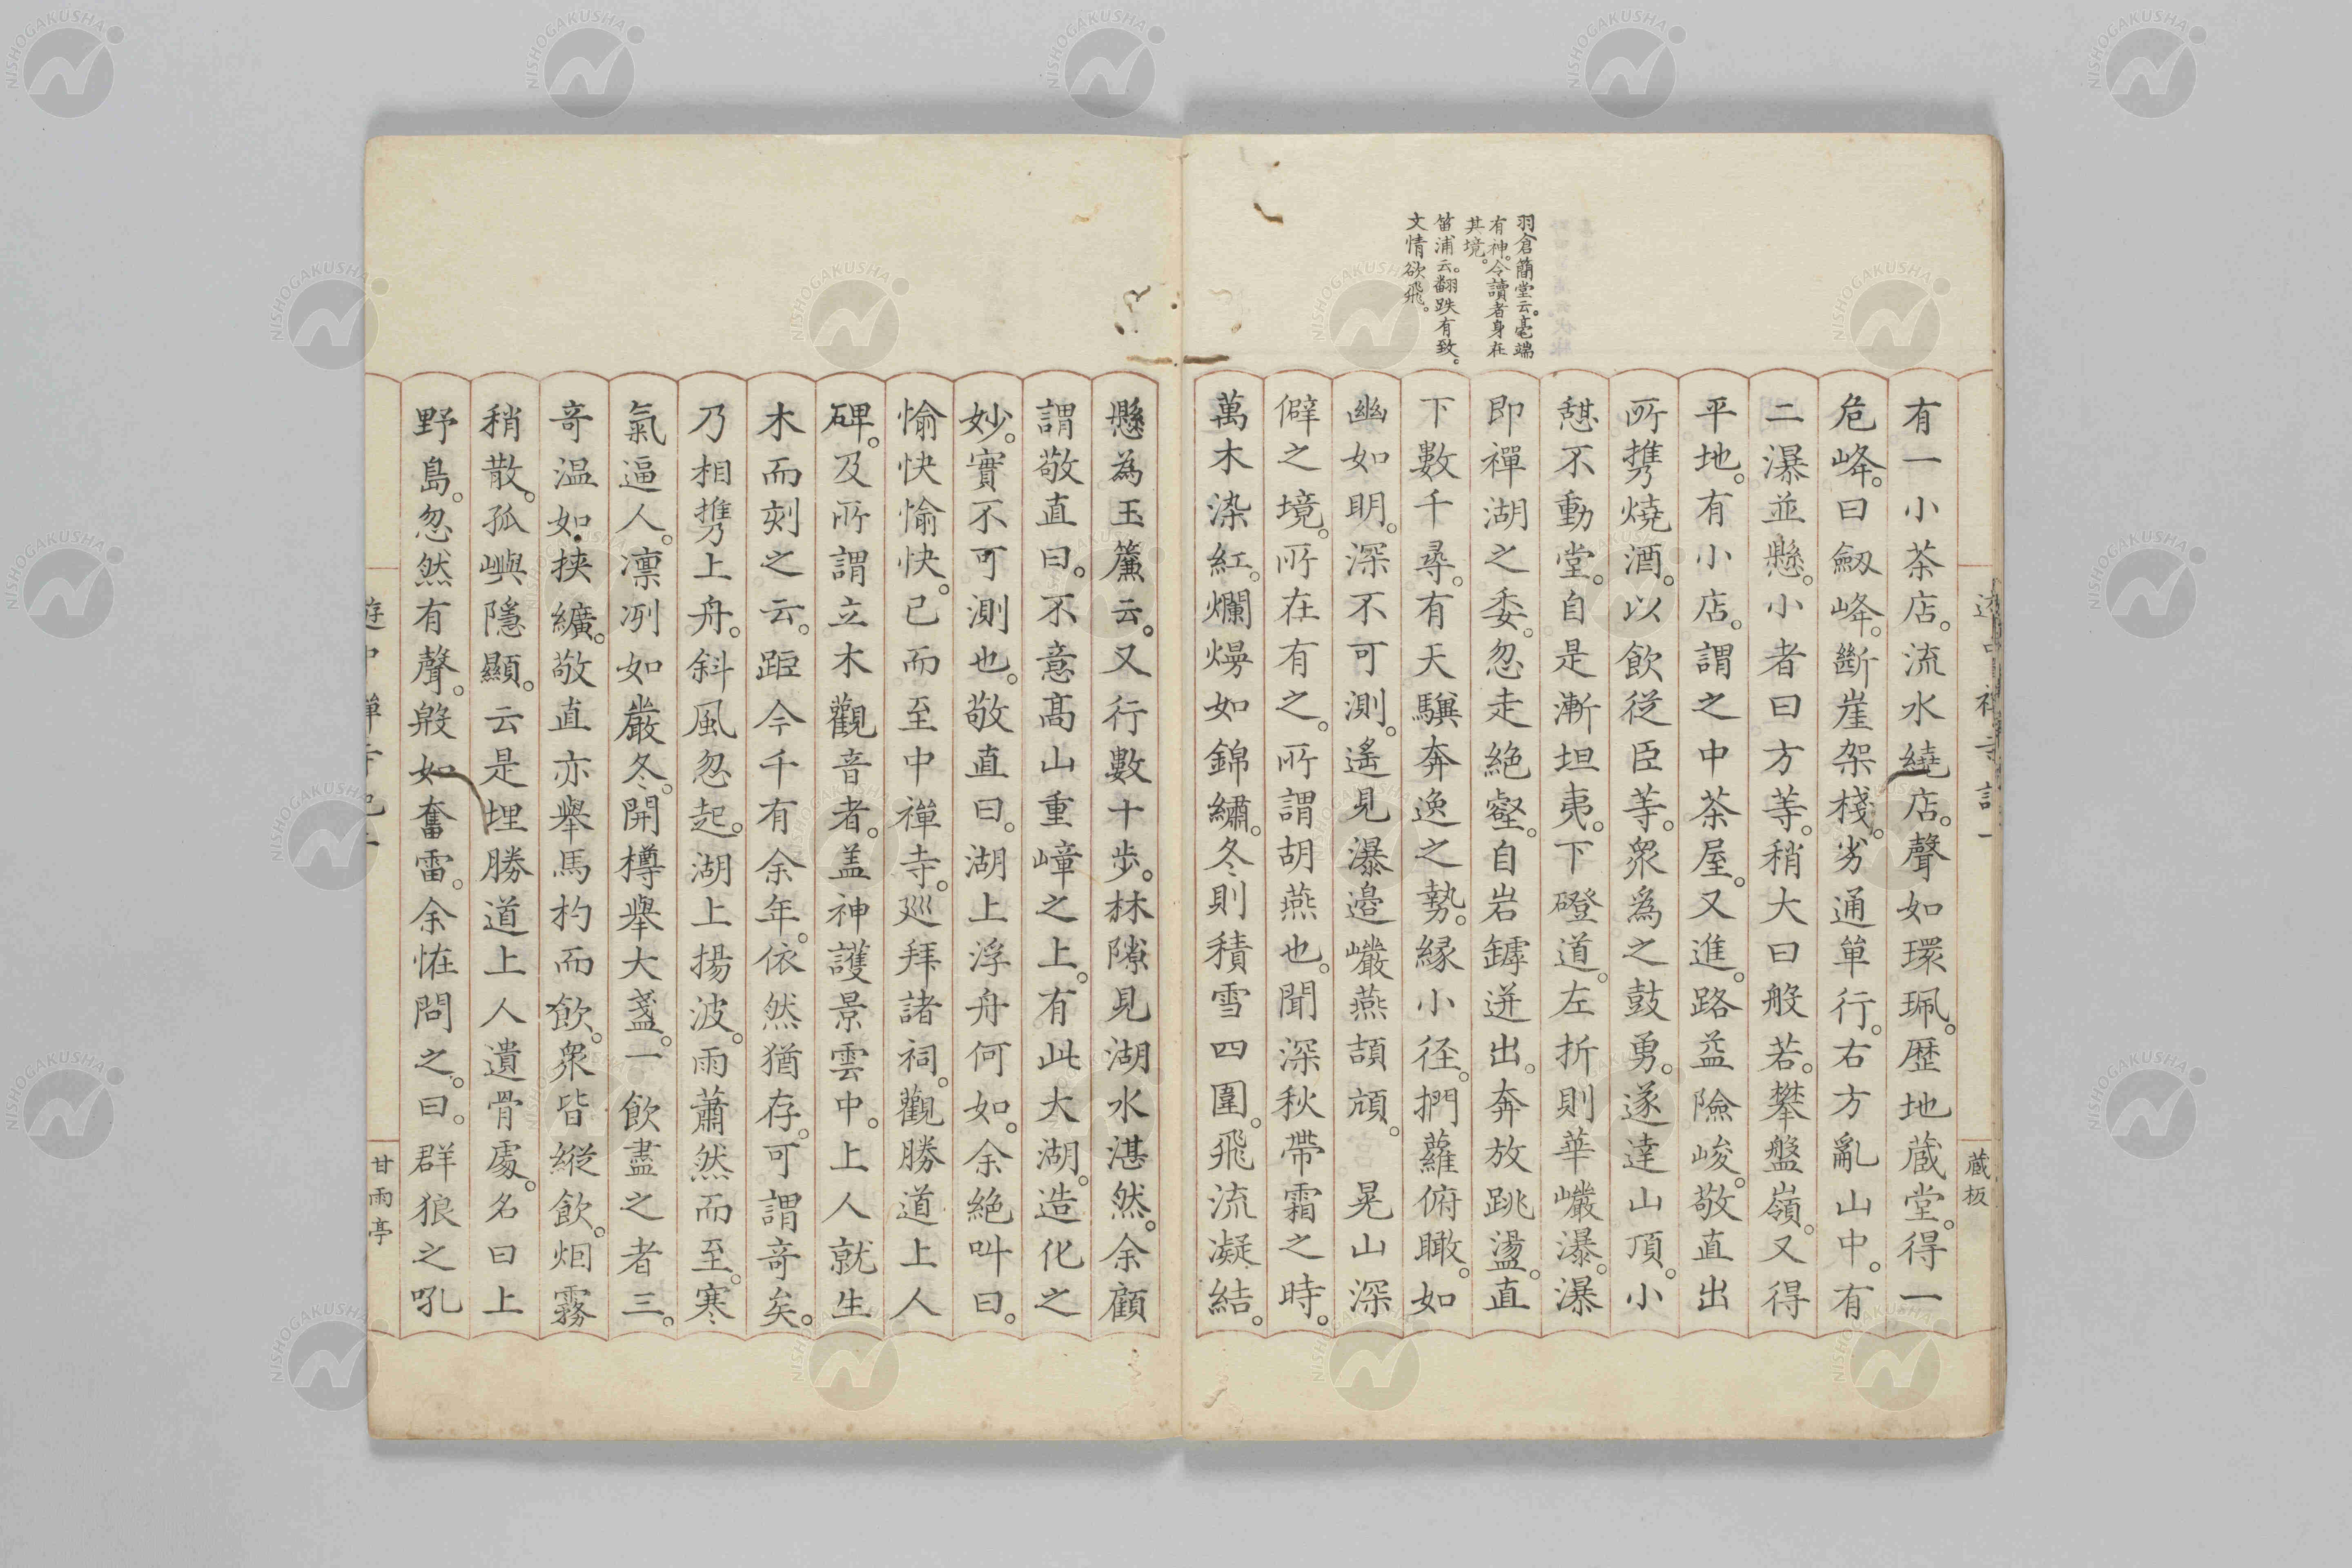 羽倉簡堂云。毫端
有神。令讀者身在
其境。
笛浦云。翻跌有致。
文情欲飛。
有一小茶店。流水繞店。聲如環珮。歴地蔵堂。得一
危峰。曰劔峰。斷崖架棧。劣通単行。右方亂山中。有
二瀑並懸。小者曰方等。稍大曰般若。攀盤嶺。又得
平地。有小店。謂之中茶屋。又進。路益險峻。敬直出
所攜燒酒。以飲從臣等。衆爲之鼓勇。遂達山頂。小
憇不動堂。自是漸坦夷。下磴道。左折則華巖瀑。瀑
即禪湖之委。忽走絶壑。自岩罅迸出。奔放跳盪。直
下數千尋。有天驥奔逸之勢。縁小径。捫蘿俯瞰。如
幽如明。深不可測。遙見瀑邉巖燕頡頏。 晃山深
僻之境。所在有之。所謂胡燕也。聞深秋帶霜之時。
萬木染紅。爛熳如錦繡。冬則積雪四圍。飛流凝結。
蔵板
懸為玉簾云。又行數十歩。林隙見湖水湛然。余顧
謂敬直曰。不意高山重嶂之上。有此大湖。造化之
妙。實不可測也。敬直曰。湖上浮舟何如。余絶叫曰。
愉快愉快。已而至中禅寺。巡拜諸祠。觀勝道上人
碑。及所謂立木觀音者。盖神護景雲中。上人就生
木而刻之云。距今千有余年。依然猶存。可謂奇矣。
乃相攜上舟。斜風忽起。湖上揚波。雨蕭然而至。寒
氣逼人。凛冽如嚴冬。開樽舉大盞。一飲盡之者三。
奇温如挾纊。敬直亦舉馬杓而飲。衆皆縱飲。烟霧
稍散。孤嶼隱顯。云是埋勝道上人遺骨處。名曰上
野島。忽然有聲。殷如奮雷。余恠問之。曰。群狼之吼
甘雨亭